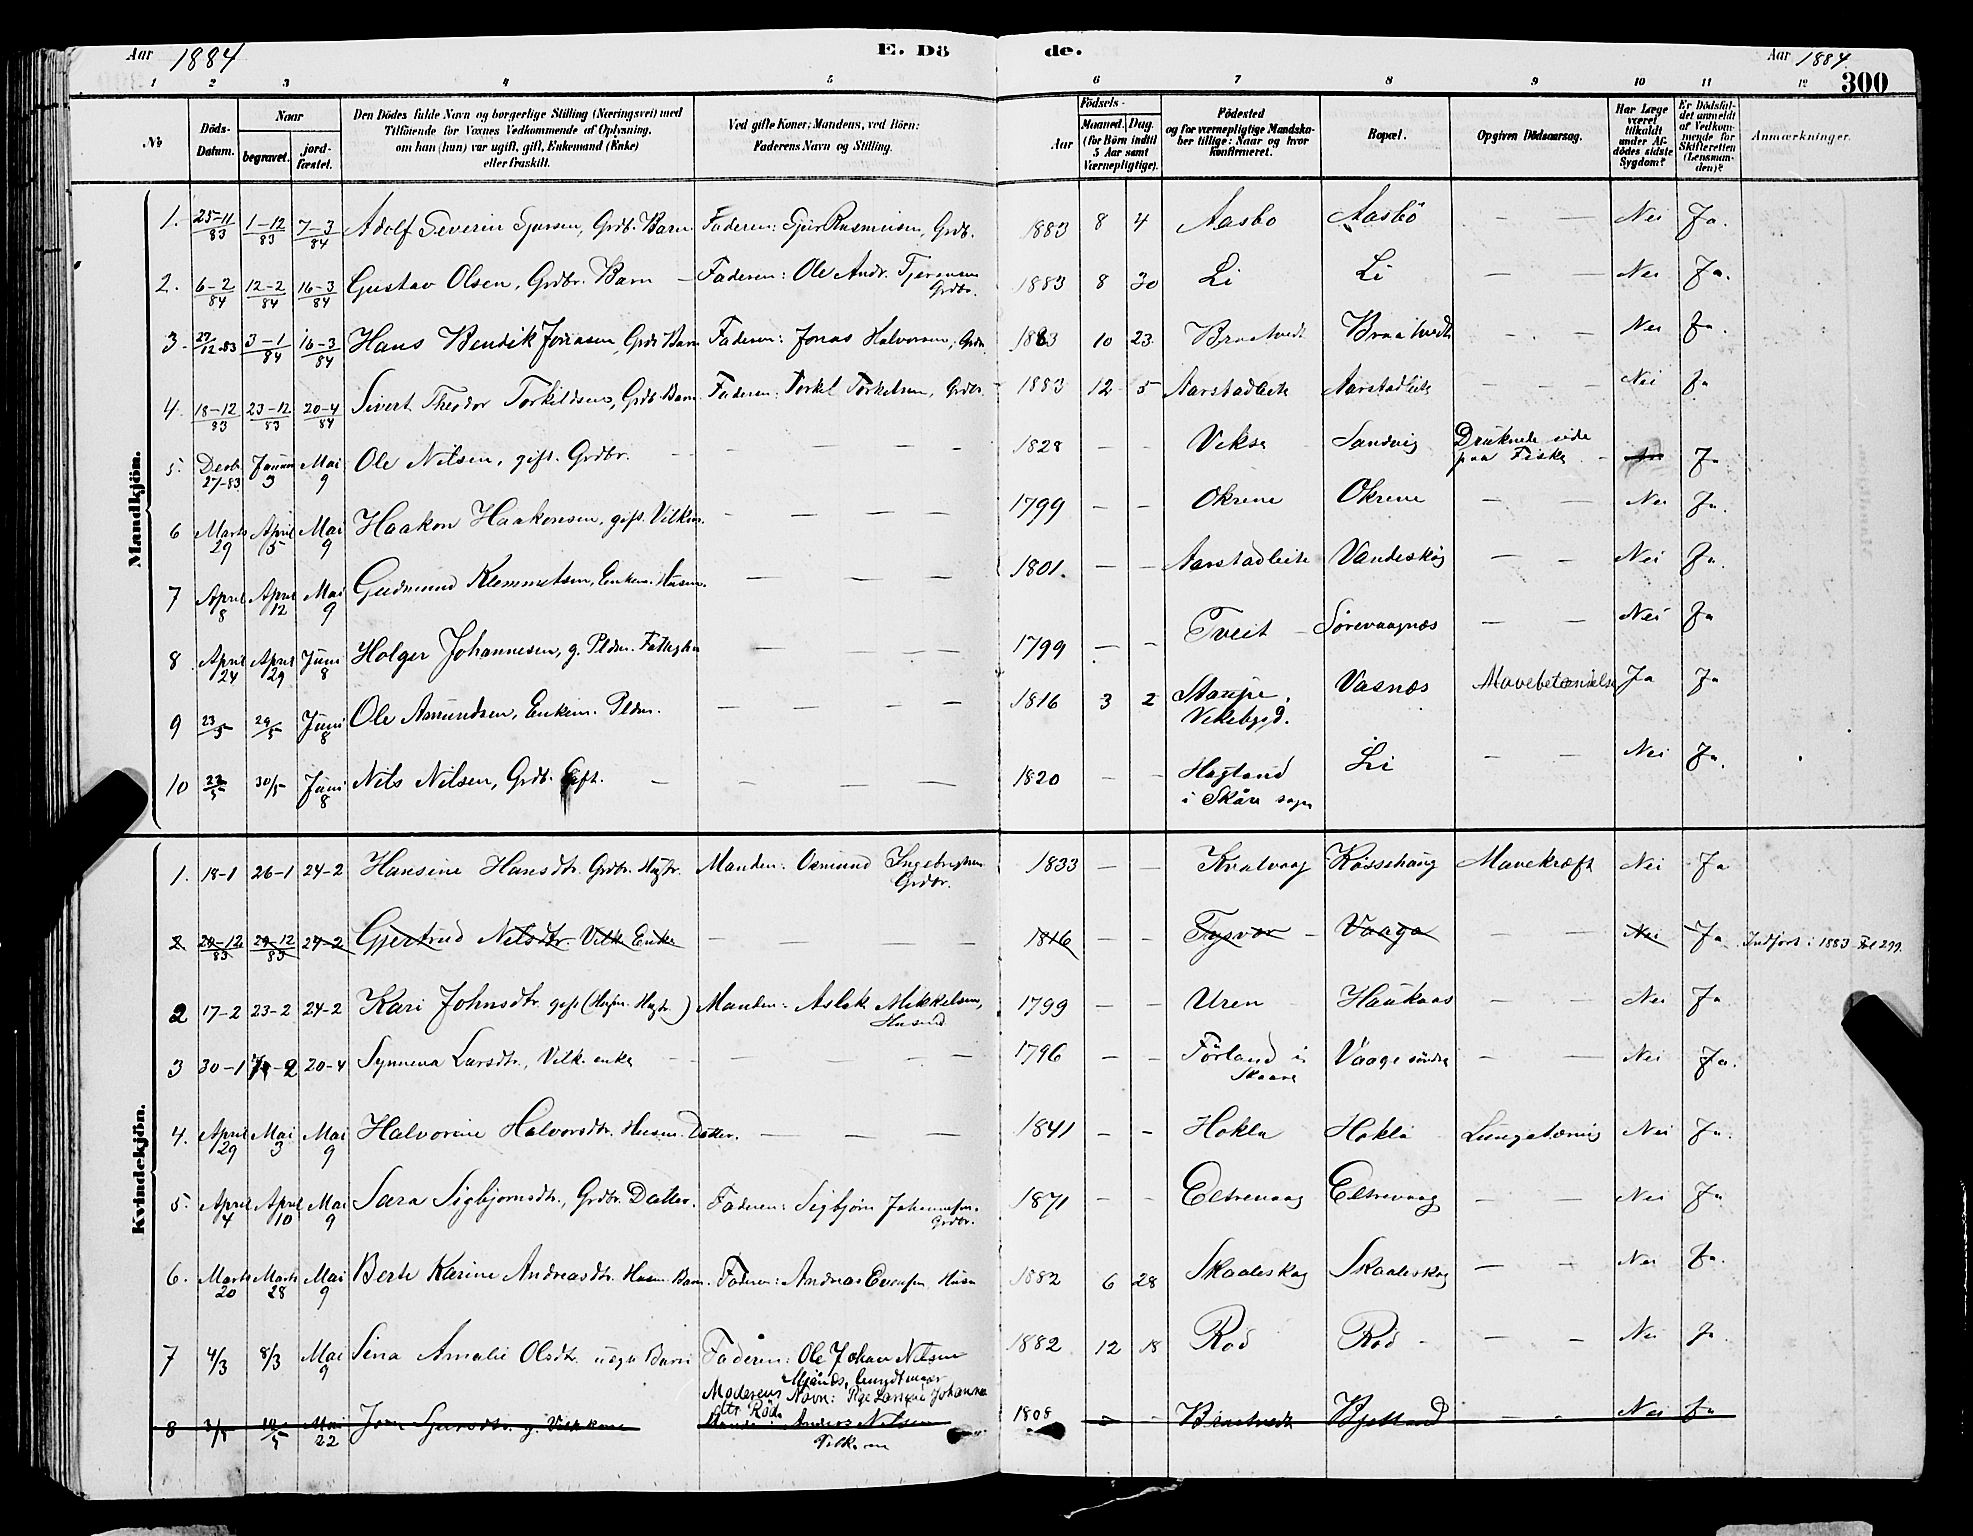 Aar 1884 E. Dö de. Aar 1884. 300
1 2 3 4 5 6 7 8 9 10 11 12
No Döds-Datum. Naar begravet. jordfæstet. Den Dödes fulde Navn og borgerlige Stilling (Næringsvei) med Tilföiende for Voxnes Vedkommende af Oplysning, om han (hun) var ugift, gift, Enkemand (Enke) eller fraskilt. Ved gifte Koner: Mandens, ved Börn: Faderens Navn og Stilling. Födsels- Aar Maaned. Dag. (for Börn indtil 5 Aar samt Værnepligtige). Födested og for værnepligtige Mandskaber tillige: Naar og hvor konfirmeret. Bopæl. Opgiven Dödsaarsag. Har Læge været tilkaldt under Afdödes sidste Sygdom? Er Dödsfaldet anmeldt af Vedkommende for Skifteretten (Lensmanden)? Anmærkninger.
Mandkjön.
1. 25-11/83 1-12/83 7-3/84 Adolf Severin Gjursen, Grdb. Barn Faderen: Gjur Rasmusen, Grdb. 1883 8 4 Aasbo Aasbö — — Nei Ja.
2. 6-2/84 12-2/84 16-3/84 Gustav Olsen, Grdbr. Barn — Faderen: Ole Andr. Tjerensen Grdbr. 1883 8 30 Li Li — — Nei Ja.
3. 27/12-83 3-1/84 16-3/84 Hans Bendik Jonasen, Grdb Barn Faderen: Jonas Halvorsen, Grdb. 1883 10 23 Braatvedt Braatvedt - - Nei Ja.
4. 18-12/83 23-12/83 20-4/84 Sivert Theodor Torkildsen, Grdb Barn Faderen: Torkel Torkelsen, Grdbr. 1883 12 5 Aarstadleite Aarstadleite - - Nei Ja
5. Decb. 27-83 Januar 3 Mai 9 Ole Nilsen, gift. Grdbr. — — — 1828 — — Vikse Sandvig Druknede ude paa Fiske — Ja
6 Marts 29 April 5 Mai 9 Haakon Haakonsen, gift. Vilkm. — — — 1799 — — Okrene Okrene — — Nei Ja.
7 April 8 April 12 Mai 9 Gudmund Klemmetsen, Enkem. Husm. — — — 1801. — — Aarstadleite Vandeskog — — Nei Ja.
8. April 24 April 29 Juni 8 Holger Johannesen, g. Pldsm. — — — 1799 — — Tveit Sörevaagnæs — — Nei Ja
9 23/5 29/5 Juni 8 Ole Amundsen, Enkem. Pldsm. — — — 1816 3 2 Staupe, Vikebygd. Vasnæs Mavebetændelse Ja Ja
10 22/5 30/5 Juni 8 Nils Nilsen, Grdb. Gift. — — — 1820 — — Hagland i Skåre sogn Li — — Nei Ja.
Kvindekjön.
1. 18-1 26-1 24-2 Hansine Hansdtr. Grdbr. Hustr. Manden: Osmund Ingebrigtsen Grdbr. 1833 — — Kvalvaag Kösshaug Mavekræft Nei Ja
2 20-12/83 29-12/83 24-2 Gjertrud Nilsdtr. Vilk Enke — — — 1816 — — Tysvær Vaage Nei Ja Indfört i 1883 Fol 299.
2 17-2 23-2 24-2 Kari Johnsdtr. gift (Husm. Hustr.) Manden: Aslak Mikkelsen, Husmd 1799 — — Uren Haukaas — — Nei Ja
3 30-1 -2 20-4 Synneva Larsdtr., Vilk. enke — — — 1796 — — Förland i Skaare Vaage söndre — — Nei Ja.
4. April 29 Mai 3 Mai 9 Halvorine Halvorsdtr. Husm. Datter. — — — 1841 — — Hokla Hokla Lungetæring Nei Ja.
5. April 4 April 10 Mai 9 Sara Sigbjörnsdtr., Grdbr. Datter. Faderen: Sigbjörn Johannesen Grdbr. 1871 — — Eltrevaag Eltrevaag — — Nei Ja
6. Marts 20 Marts 28 Mai 9 Berte Karine Andreasdtr. Husm. Barn. Faderen: Andreas Evensen Husm 1882 6 28 Skaaleskog Skaaleskog — — Nei Ja.
7 4/3 8/3 Mai 9 Sina Amalie Olsdtr. uægte Barn Faderen: Ole Johan Nilsen Mjånes, Moderens Navn: Pige Larsine Johanna dtr Röd. 1882 12 18 Röd Röd — — Nei Ja
8 3/5 10/5 Mai 22 Gjursdtr. g. Vilkkone Manden: Anders Nilsen Vilkm 1808 — — Braatvedt Gjetland — — Nei Ja